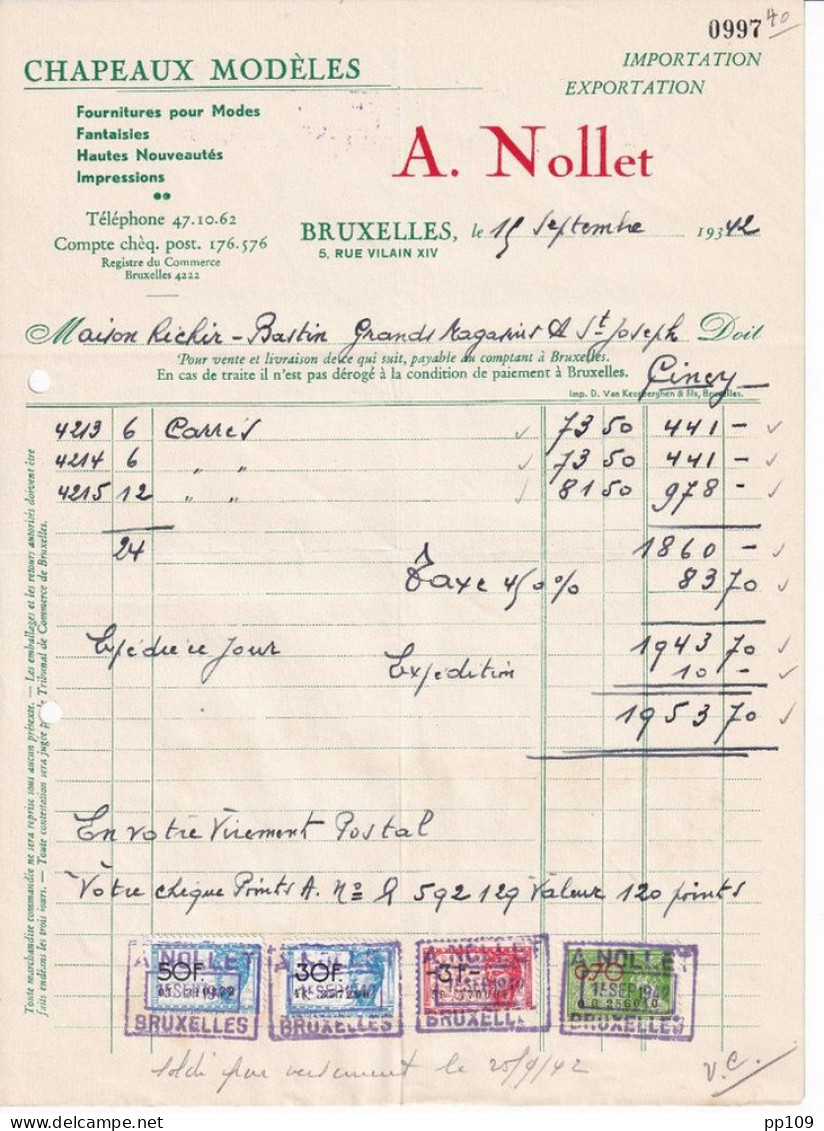 0997
40
CHAPEAUX MODÈLES
IMPORTATION
EXPORTATION
Fournitures pour Modes
Fantaisies
Hautes Nouveautés
Impressions
A. Nollet
Téléphone 47.10.62
Compte chèq. post. 176.576
Registre du Commerce
Bruxelles 4222
BRUXELLES, le 15 Septembre 19342
5, RUE VILAIN XIV
Maison Richir - Bastin Grands Magasins A St Joseph Doit
Pour vente et livraison de ce qui suit, payable au comptant à Bruxelles.
En cas de traite il n'est pas dérogé à la condition de paiement à Bruxelles.
Ciney
Imp. D. Van Keerberghen & fils, Bruxelles.
4213 6 Carrés 73 50 441 -
4214 6 " " 73 50 441 -
4215 12 " " 81 50 978 -
24 1860 -
Taxe 4,50 % 83 70
Expédié ce Jour 1943 70
Expédition 10 -
1953 70
En votre Virement Postal
Votre chèque Points A. No 592129 Valeur 120 points
Toute marchandise commandée ne sera reprise sous aucun prétexte. — Les emballages et les retours autorisés doivent être
faits endéans les trois jours. — Toute contestation sera jugée par le Tribunal de Commerce de Bruxelles.
50F.
A. NOLLET
BRUXELLES
30F.
A. NOLLET
15 SEP 1942
BRUXELLES
-3F-
A. NOLLET
15 SEP 1942
BRUXELLES
0F70
A. NOLLET
15 SEP 1942
BRUXELLES
soldé par versement le 25/9/42
V.C.
pp109